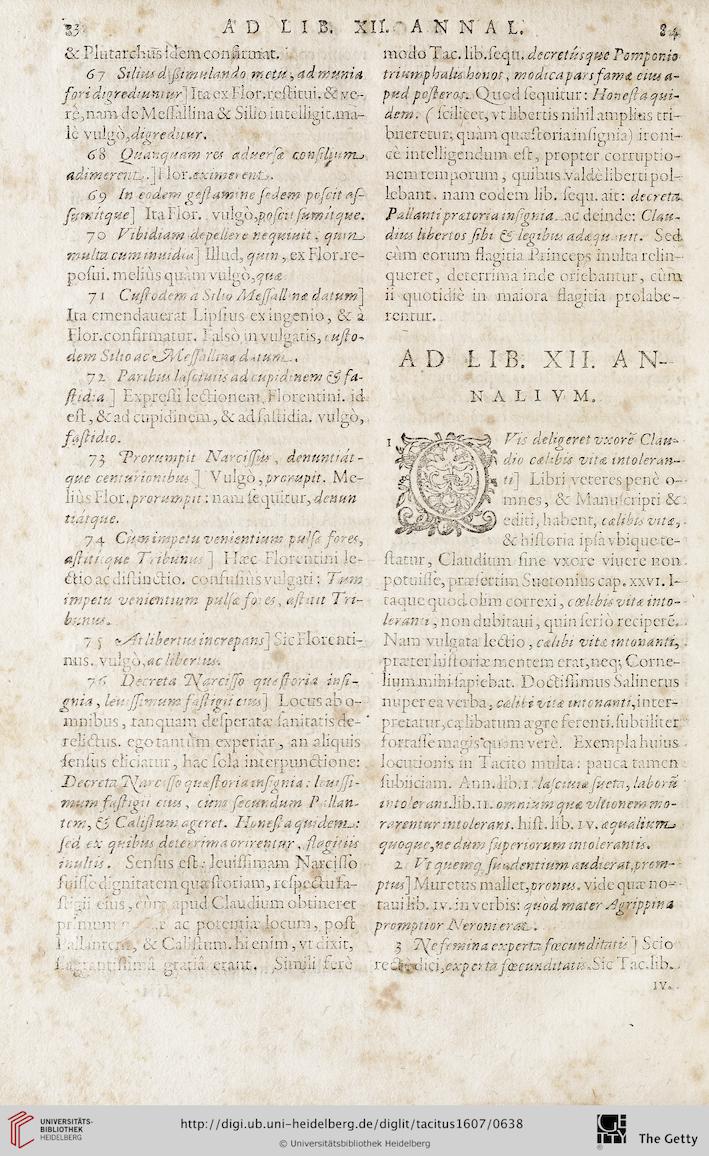 83 AD LIB. XII. ANNAL. 84
& Plutarchus idem confirmat.
67 Silius dissimulando metu, ad munia
fori digrediuntur] Ita ex Flor. restitui. & ve-
rè, nam de Messallina & Silio intelligit. ma-
lè vulgò, digreditur.
68 Quanquam res adversæ consilium
adimerent.] Flor. eximerent.
69 In eodem gestamine sedem poscit as-
sumitque] Ita Flor. vulgò, poscit sumitque.
70 Vibidiam depellere nequiuit, quin
multa cum inuidia] Illud, quin, ex Flor. re-
posui. meliùs quàm vulgò, quæ
71 Custodem à Silio Messallinæ datum]
Ita emendauerat Lipsius ex ingenio, & à
Flor. confirmatur. Falsò in vulgatis, custo-
dem Silio ac Messallinæ datum.
72 Paribus lasciuiis ad cupidinem & fa-
stidia] Expressi lectionem Florentini. id
est, & ad cupidinem, & ad fastidia. vulgò,
fastidio.
73 Prorumpit Narcissus, denuntiát-
que centurionibus] Vulgò, prorupit. Me-
liùs Flor. prorumpit: nam sequitur, denun
tiátque.
74 Cùm impetu venientium pulsæ fores,
astititque Tribunus] Hæc Florentini le-
ctio ac distinctio. confusiùs vulgati: Tum
impetu venientium pulsæ fores, astitit Tri-
bunus.
75 At libertus increpans] Sic Florenti-
nus. vulgò, ac libertus.
76 Decreta Narcisso quæstoria insi-
gnia, leuissimum fastigii eius] Locus ab o-
mnibus, tanquam desperatæ sanitatis de-
relictus. ego tantùm experiar, an aliquis
sensus eliciatur, hac sola interpunctione:
Decreta Narcisso quæstoria insignia: leuissi-
mum fastigii eius, cùm secundum Pallan-
tem, & Calistum ageret. Honesta quidem:
sed ex quibus deterrima orirentur, flagitiis
inultis. Sensus est: leuissimam Narcisso
fuisse dignitatem quæstoriam, respectu fa-
stigii eius, cùm apud Claudium obtineret
primum ac potentiæ locum, post
Pallantem, & Calistum. hi enim, vt dixit,
flagrantissimâ gratiâ erant. Simili ferè
modo Tac. lib. sequ. decretúsque Pomponio
triumphalis honos, modica pars famæ eius a-
pud posteros. Quod sequitur: Honesta qui-
dem: (scilicet, vt libertis nihil amplius tri-
bueretur, quàm quæstoria insignia) ironi-
cè intelligendum est, propter corruptio-
nem temporum, quibus valdè liberti pol-
lebant. nam eodem lib. sequ. ait: decreta
Pallanti prætoria insignia. ac deinde: Clau-
dius libertos sibi & legibus adæquauit. Sed
cùm eorum flagitia Princeps inulta relin-
queret, deterrima inde oriebantur, cùm
ii quotidiè in maiora flagitia prolabe-
rentur.
AD LIB. XII. AN-
NALIVM.
1 QVis deligeret vxorē Clau-
dio cælibis vitæ intoleran-
ti] Libri veteres penè o-
mnes, & Manuscripti &
editi, habent, cælibis vitæ,
& historia ipsa vbique te-
statur, Claudium sine vxore viuere non
potuisse, præsertim Suetonius cap. XXVI. I-
taque quod olim correxi, cœlibis vitæ into-
leranti, non dubitaui, quin seriò reciperē.
Nam vulgata lectio, cælibi vitæ intonanti,
præter historiæ mentem erat, neq; Corne-
lium mihi sapiebat. Doctissimus Salinerus
nuper ea verba, cælibi vitæ intonanti, inter-
pretatur, cælibatum ægre ferenti. subtiliter
fortasse magis quàm verè. Exempla huius
locutionis in Tacito multa: pauca tamen
subiiciam. Ann. lib. I. lasciuiæ sueta, laborū
intolerans. lib. II. omnium quæ vltionem mo-
rarentur intolerans. hist. lib. IV. æqualium
quoque, ne dum superiorum intolerantis.
2 Vt quemq. suadentium audierat, prom-
ptus] Muretus mallet, pronus. vide quæ no-
taui lib. IV. in verbis: quod mater Agrippina
promptior Neroni erat.
3 Ne femina expertæ fœcunditatis] Scio
rectè dici, experta fœcunditatis. Sic Tac. lib.
IV.
UNIVERSITÄTS-
BIBLIOTHEK
HEIDELBERG
http://digi.ub.uni-heidelberg.de/diglit/tacitus1607/0638
© Universitätsbibliothek Heidelberg
The Getty